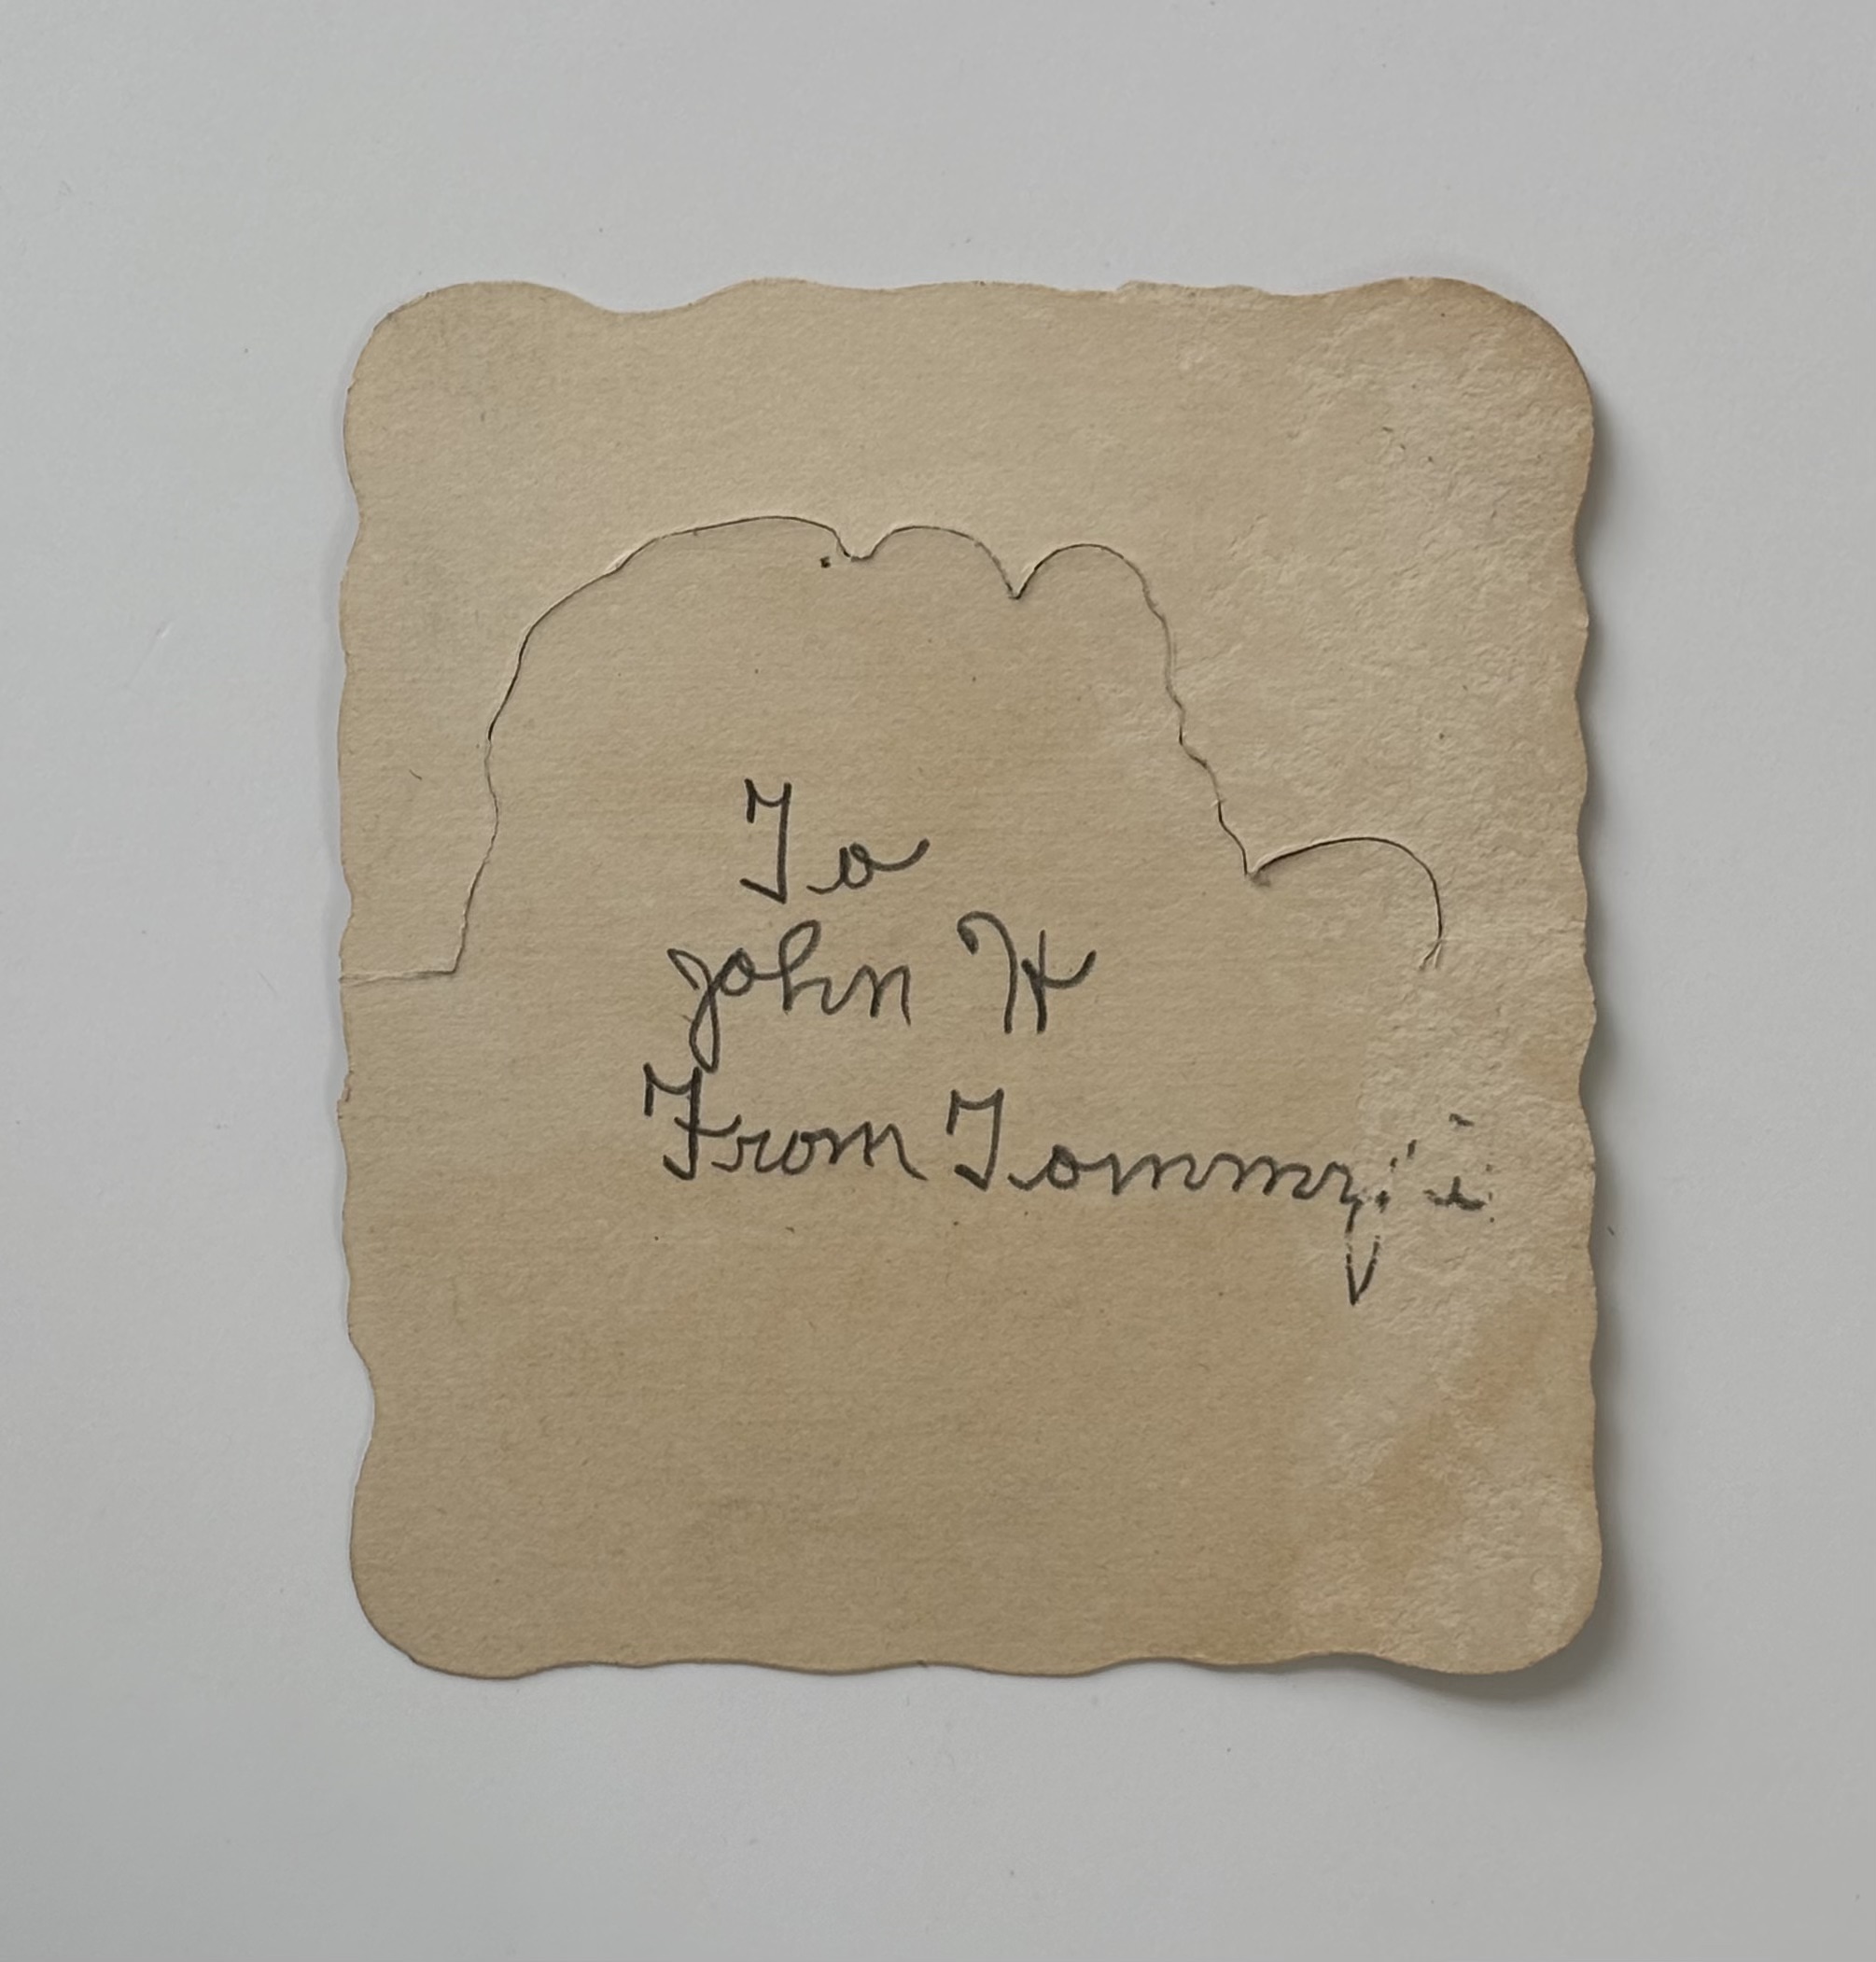 To
John H
From Tommy